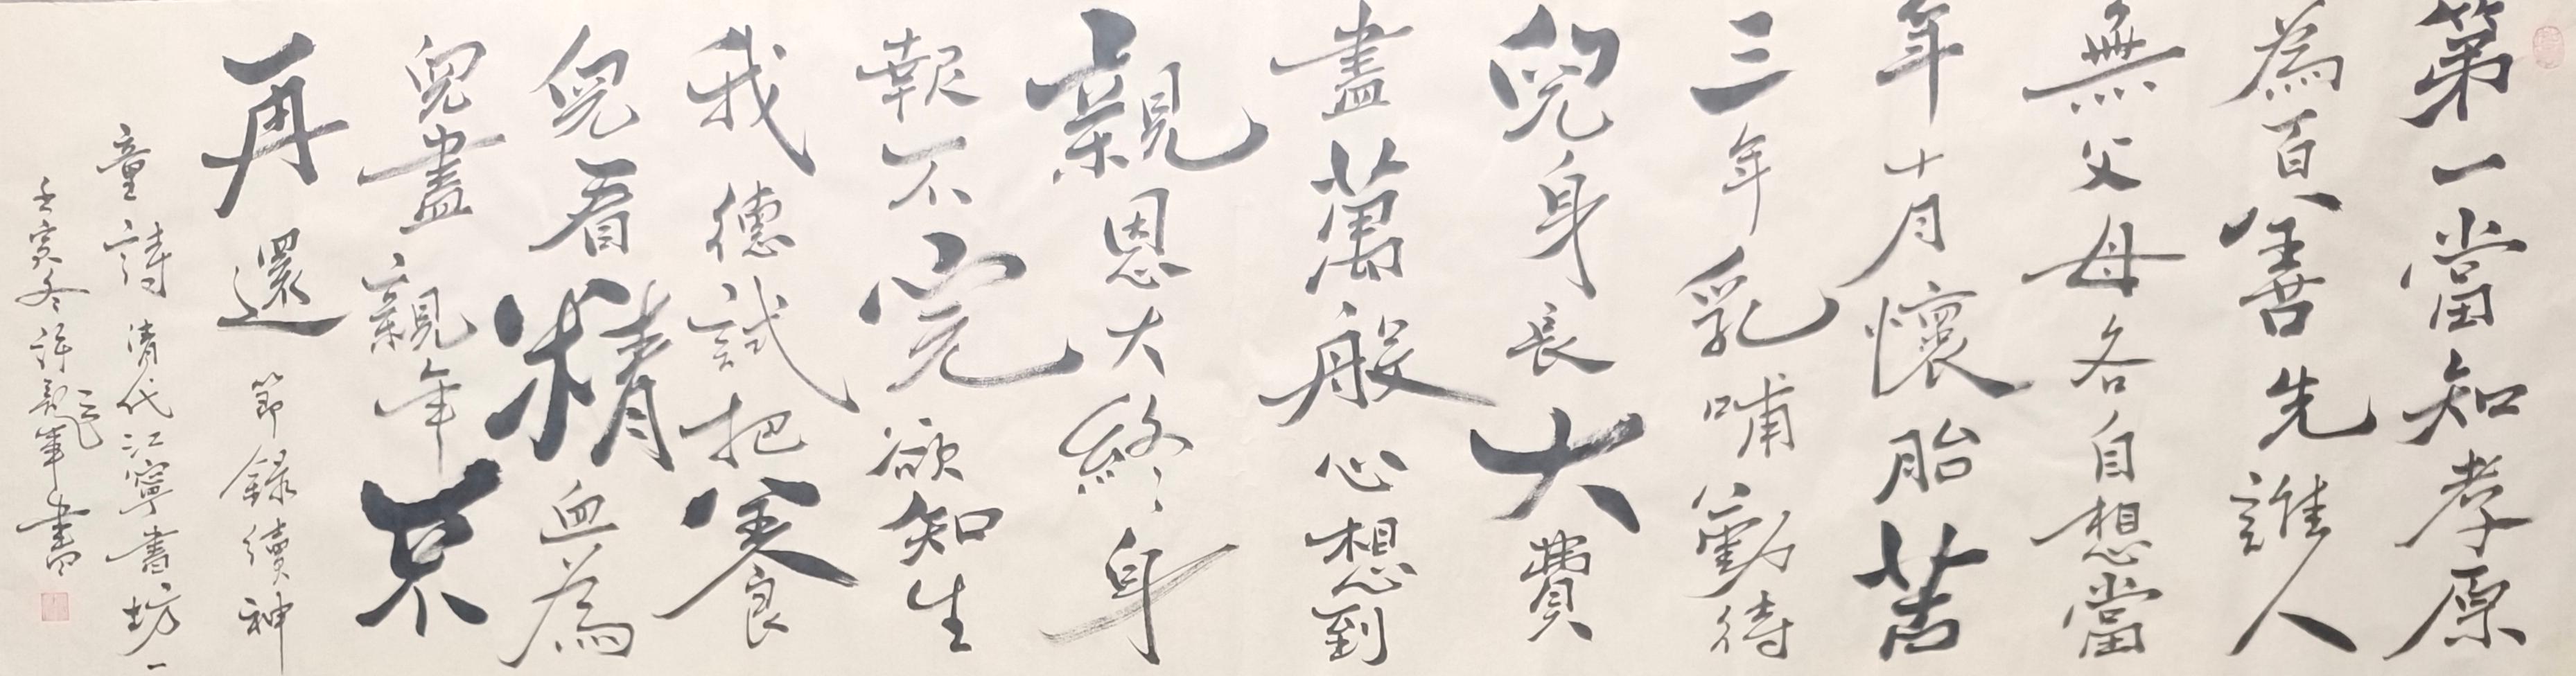 第一當知孝原
為百善先誰人
無父母各自想當
年十月懷胎苦
三年乳哺勤待
兒身長大費
盡萬般心想到
親恩大終身
報不完欲知生
我德試把養
兒看精血為
兒盡親年不
再還 節錄續神
童詩 清代江寧書坊一
壬寅冬許 筆書